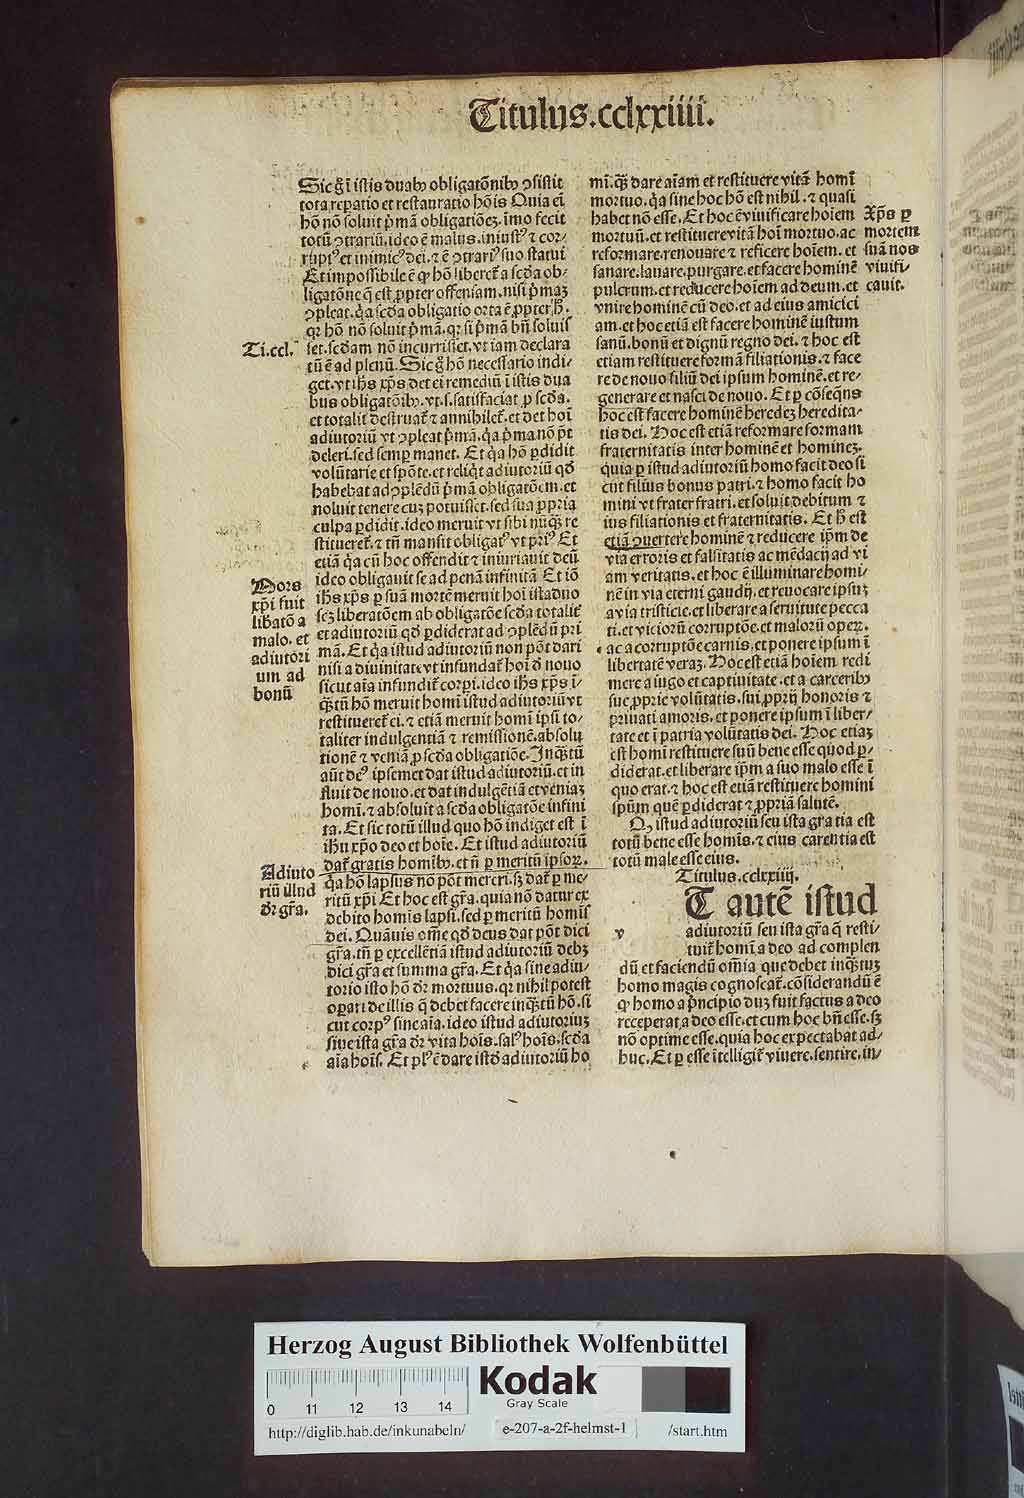 Titulus.cclxxiiii.
Sic g̃ ĩ istis duabꝰ obligatõnibꝰ ꝯsistit
tota repatio et restauratio hõis Quia eĩ
hõ nõ soluit p̃mã obligatiõeꝫ.ĩmo fecit
totũ ꝯtrariũ.ideo ẽ malus.iniustꝰ ⁊ cor⸗
ruptꝰ et inimicꝰ dei.⁊ ẽ ꝯtrariꝰ suo statui
Et impossibile ẽ ꝙ hõ liberet̃ a scďa ob⸗
ligatõne q̃ est ꝓpter offensam.nisi p̃maꝫ
ꝯpleat.q̃a scďa obligatio orta ẽ ꝓpter h̃.
qꝛ hõ nõ soluit p̃mã.qꝛ si p̃mã bñ soluis
Ti.ccl.
set.scďam nõ incurrisset.vt iam declara
tũ ẽ ad plenũ. Sic g̃ hõ necessario indi⸗
get.vt ihs xp̃s det ei remediũ ĩ istis dua
bus obligatõibꝰ.vt.s.satisfaciat ꝓ scďa.
et totalit̃ destruat̃ ⁊ annihilet̃.et det hoĩ
adiutoriũ vt ꝯpleat p̃mã.q̃a p̃ma nõ põt
deleri.sed semꝑ manet. Et q̃a hõ ꝑdidit
volũtarie et spõte.et reliq̃t adiutoriũ qď
habebat ad ꝯplẽdũ p̃mã obligatõem.et
noluit tenere cuꝫ potuisset.sed sua ꝓpria
culpa ꝑdidit.ideo meruit vt sibi nũq̃ꝫ re
stitueret̃.⁊ tñ mansit obligatꝰ vt priꝰ Et
etiã q̃a cũ hoc offendit ⁊ iniuriauit deũ
ideo obligauit se ad penã infinitã Et iõ
Mors
xp̃i fuit
libatõ a
malo. et
adiutori
um ad
bonũ
ihs xp̃s ꝑ suã mortẽ meruit hoĩ ista duo
scꝫ liberatõem ab obligatõe scďa totalit̃
et adiutoriũ qď ꝑdiderat ad ꝯplẽdũ pri
mã. Et q̃a istud adiutoriũ non põt dari
nisi a diuinitate vt infundat̃ hoĩ ď nouo
sicut aĩa infundit̃ corpi.ideo ihs xp̃s ĩ⸗
q̃ꝫtũ hõ meruit homĩ istud adiutoriũ vt
restitueret̃ ei.⁊ etiã meruit homĩ ipsi to⸗
taliter indulgentiã ⁊ remissionẽ.absolu
tionẽ ⁊ veniã ꝓ scďa obligatiõe. Inq̃ꝫtũ
aũt deꝰ ipsemet dat istud adiutoriũ.et in
fluit de nouo.et dat indulgẽtiã et veniaꝫ
homĩ.⁊ absoluit a scďa obligatõe infini
ta. Et sic totũ illud quo hõ indiget est ĩ
ihũ xp̃o deo et hoĩe. Et istud adiutoriũ
dat̃ gratis homĩbꝰ.et ñ ꝑ meritũ ipsoꝝ.
Adiuto
riũ illud
dr̃ gr̃a.
q̃a hõ lapsus nõ põt mereri.sꝫ dat̃ ꝑ me⸗
ritũ xp̃i Et hoc est gr̃a.quia nõ datur ex
debito homĩs lapsi.sed ꝑ meritũ homĩs
dei. Quãuis om̃e qď deus dat põt dici
gr̃a.tñ ꝑ excellẽtiã istud adiutoriũ debꝫ
dici gr̃a et summa gr̃a. Et q̃a sine adiu⸗
torio isto hõ dr̃ mortuus.qꝛ nihil potest
oꝑari de illis q̃ debet facere inq̃ꝫtũ hõ.si
cut corpꝰ sine aĩa.ideo istud adiutoriuꝫ
siue ista gr̃a dr̃ vita hoĩs.salꝰ hoĩs.scďa
aĩa hoĩs. Et plꝰ ẽ dare istď adiutoriũ ho
mĩ.q̃ꝫ dare aĩam et restituere vitã homĩ
mortuo.q̃a sine hoc hõ est nihil.⁊ quasi
habet nõ esse. Et hoc ẽ viuificare hoĩem
mortuũ.et restituere vitã hoĩ mortuo.ac
reformare.renouare ⁊ reficere hoĩem.et
sanare.lauare.purgare.et facere hominẽ
pulcrum.et reducere hoĩem ad deum.et
vnire hominẽ cũ deo.et ad eius amicici
Xp̃s ꝑ
mortem
suã nos
viuifi⸗
cauit.
am.et hoc etiã est facere hominẽ iustum
sanũ.bonũ et dignũ regno dei.⁊ hoc est
etiam restituere formã filiationis.⁊ face
re de nouo filiũ dei ipsum hominẽ.et re⸗
generare et nasci de nouo. Et ꝑ cõseq̃ns
hoc est facere hominẽ heredeꝫ heredita⸗
tis dei. Hoc est etiã reformare formam
fraternitatis inter hominẽ et homineꝫ.
quia ꝑ istud adiutoriũ homo facit deo si
cut filius bonus patri.⁊ homo facit ho
mini vt frater fratri.et soluit debitum ⁊
ius filiationis et fraternitatis. Et h̃ est
etiã ꝯuertere hominẽ ⁊ reducere ip̃m de
via erroris et falsitatis ac mẽdacij ad vi
am veritatis.et hoc ẽ illuminare homi⸗
nẽ in via eterni gaudij.et reuocare ipsuꝫ
a via tristicie.et liberare a seruitute pecca
ti.et viciorũ corruptõe.et malorũ operꝝ.
ac a corruptõe carnis.et ponere ipsum ĩ
libertatẽ veraꝫ. Hoc est etiã hoĩem redi
mere a iugo et captiuitate.et a carceribꝰ
sue ꝓprie volũtatis.sui ꝓprij honoris ⁊
priuati amoris.et ponere ipsum ĩ liber⸗
tate et ĩ patria volũtatis dei. Hoc etiaꝫ
est homĩ restituere suũ bene esse quod ꝑ⸗
diderat.et liberare ip̃m a suo malo esse ĩ
quo erat.⁊ hoc est etiã restituere homini
sp̃um quẽ ꝑdiderat ⁊ ꝓpriã salutẽ.
Qꝫ istud adiutoriũ seu ista gratia est
totũ bene esse homĩs.⁊ eius carentia est
totũ male esse eius.
Titulus.cclxxiiij.
T autẽ istud
v
adiutoriũ seu ista gr̃a q̃ resti⸗
tuit̃ homĩ a deo ad complen
dũ et faciendũ om̃ia que debet inq̃ꝫtuꝫ
homo magis cognoscat̃.cõsiderandũ ẽ
ꝙ homo a p̃ncipio duꝫ fuit factus a deo
receperat a deo esse.et cum hoc bñ esse.sꝫ
nõ optime esse.quia hoc expectabat ad⸗
huc. Et ꝑ esse ĩtelligit̃ viuere.sentire.in⸗
Herzog August Bibliothek Wolfenbüttel
0 11 12 13 14
Kodak
Gray Scale
http://diglib.hab.de/inkunabeln/ e-207-a-2f-helmst-1 /start.htm